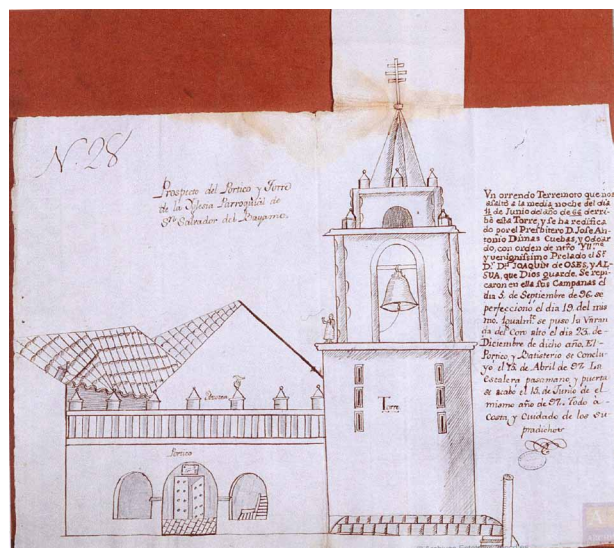 N. 28
Prospecto del Pórtico y Torre
de la Yglesia Parroquial de
Sn. Salvador del Bayamo.
Vn orrendo Terremoto que nos
asaltó a la media noche del dia
11 de Junio del año de 66 derri-
bó esta Torre, y se ha redifica-
do por el Presbitero D. Jose An-
tonio Dimas Cuebas, y Odoar-
do, con orden de nrõ Yllmo
y venignissimo Prelado el Sr.
Dr. Dn. JOAQUIN de OSES, y AL-
SUA, que Dios guarde. Se repi-
caron en ella sus Campanas el
dia 5. de Septiembre de 96. se
perfeccionó el dia 19. del mis
mo. Igualmte. se puso la Varan
da del Coro alto el dia 23. de
Diciembre de dicho año. El
Portico, y Batisterio se Conclu-
yó el 13. de Abril de 97. La
Escalera pasamano, y puerta
se acabó el 15. de Junio de el
mismo año de 97. Todo á
Costa, y Cuidado de los su
pradichos
Torre
Portico